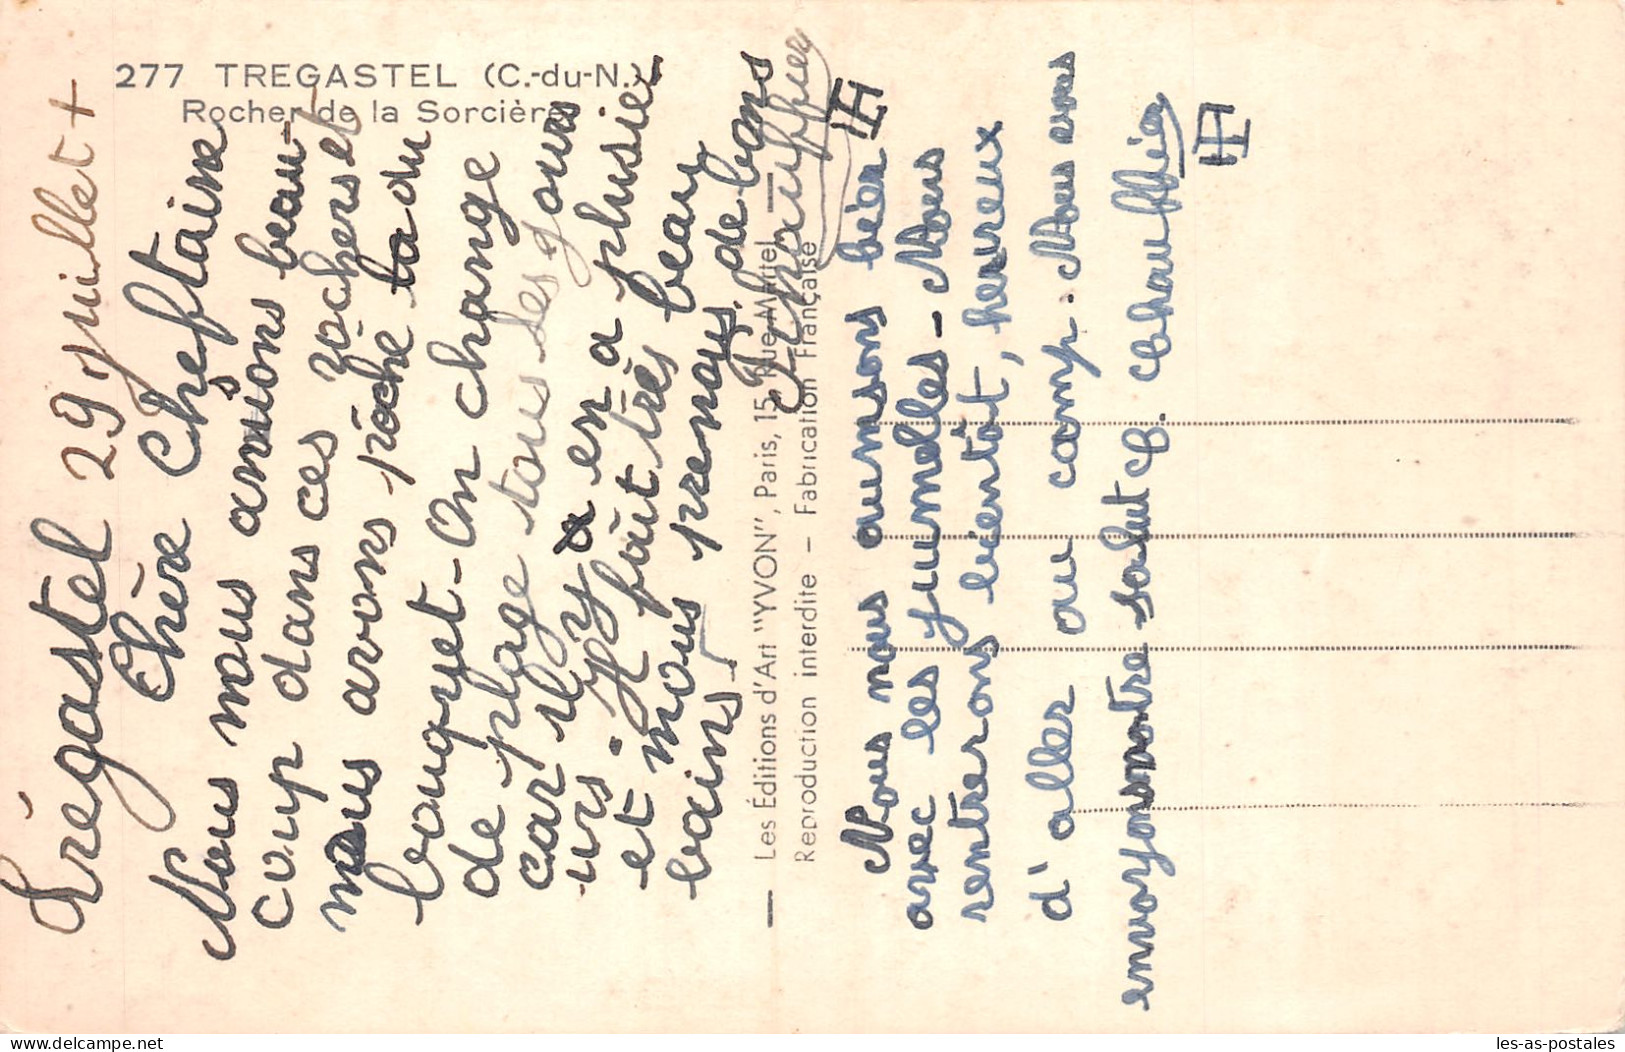 277 TREGASTEL (C.-du-N.)
Rocher de la Sorcière
Trégastel 29 juillet +
Chère Cheftaine
Nous nous amusions beau-
coup dans ces rochers et
nous avons pêché ta du
bouquet - On change
de plage tous les jours
car il y en a plusie-
urs. Il fait très beau
et nous prenons de bons
bains.
Chauffier
— Les Éditions d'Art "YVON", Paris, 15, Rue Martel —
Reproduction interdite — Fabrication Française
Nous nous aumsons bien
avec les jumelles - Nous
rentrerons bientôt, heureux
d'aller au camp. Nous vous
envoyons notre salut
B. Chauffier
les-as-postales